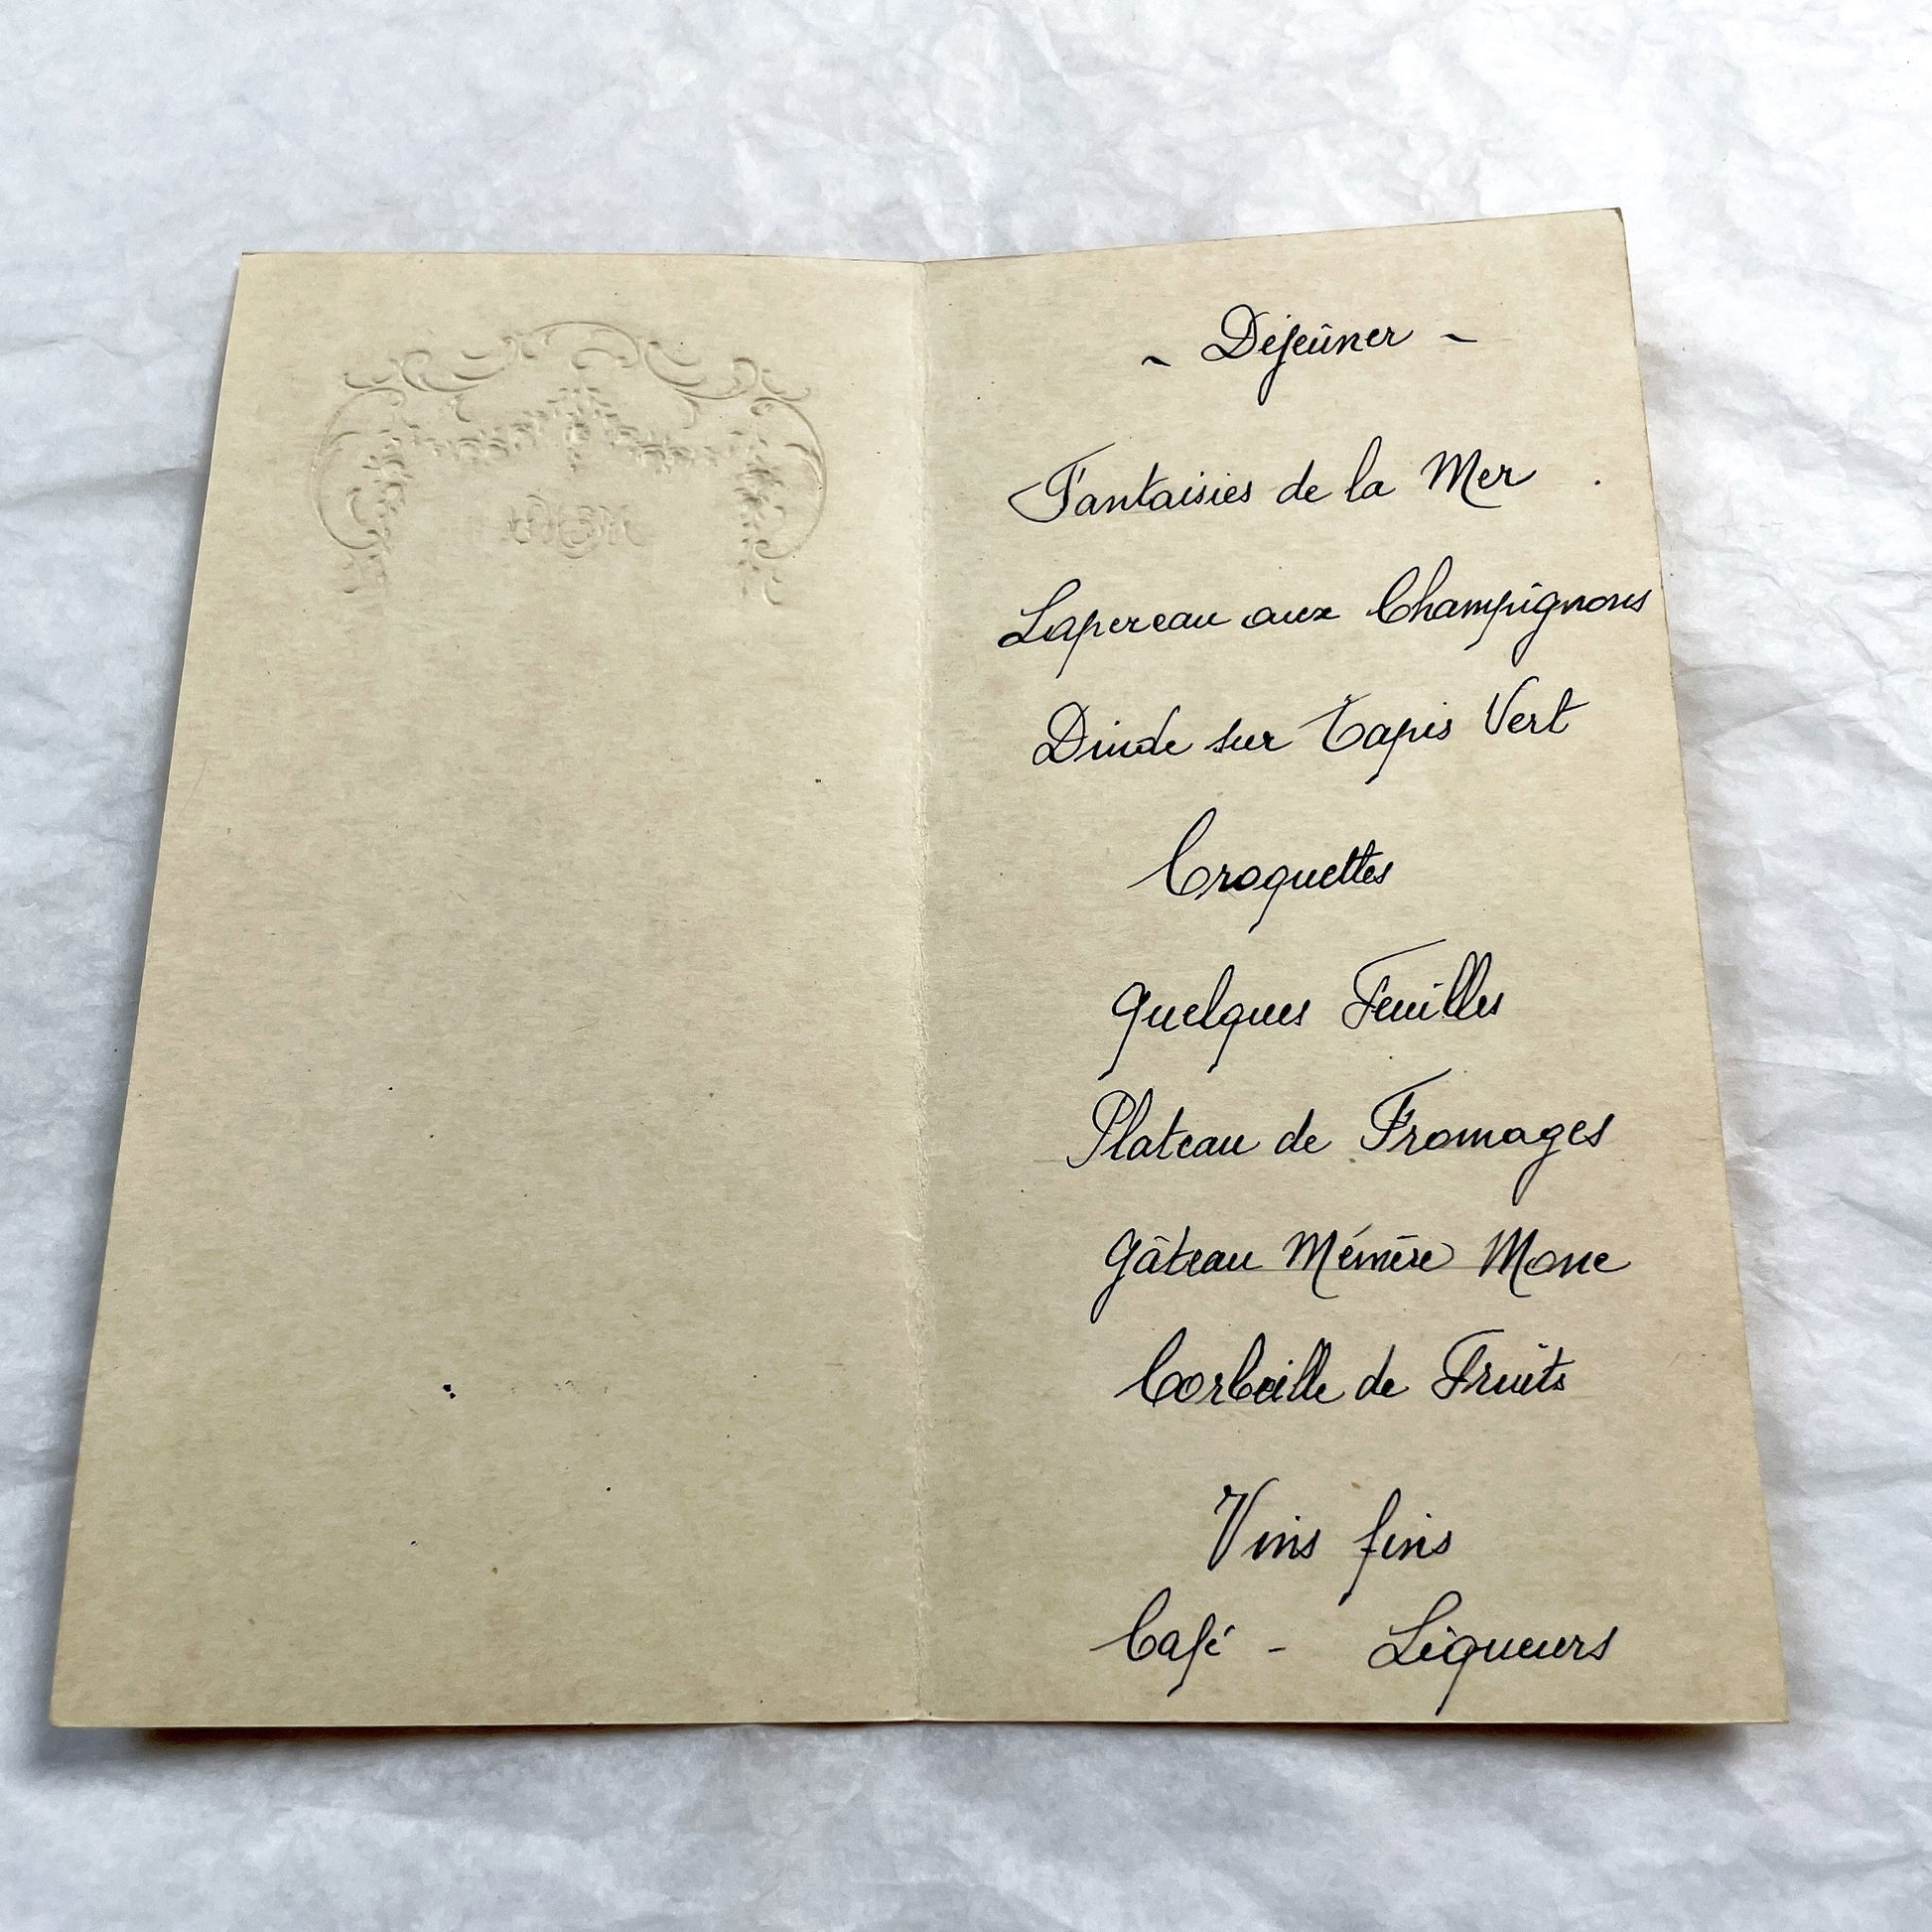 ~ Déjeûner ~
Fantaisies de la Mer
Lapereau aux Champignons
Dinde sur Tapis Vert
Croquettes
Quelques Feuilles
Plateau de Fromages
Gâteau Mémère Mone
Corbeille de Fruits
Vins fins
Café - Liqueurs